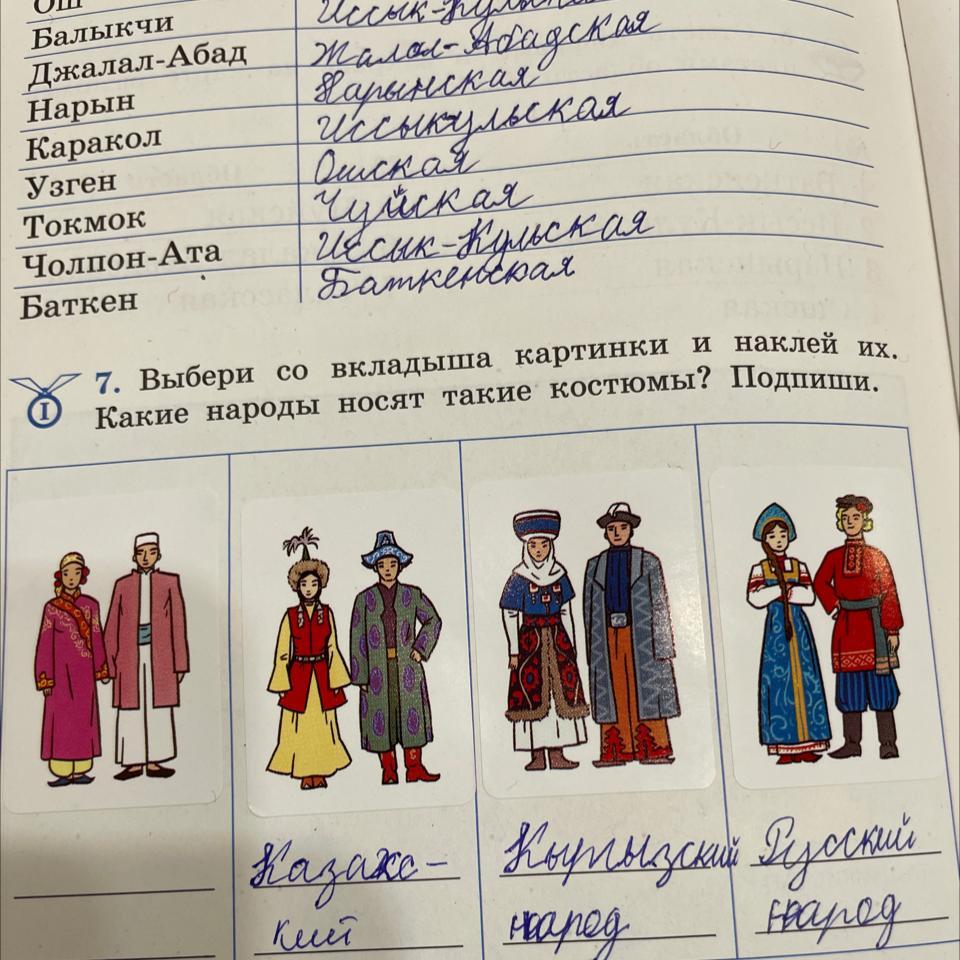 Ош Иссык-Кульская
Балыкчи Жалал-Абадская
Джалал-Абад Нарынская
Нарын Иссыкульская
Каракол Ошская
Узген Чуйская
Токмок Иссык-Кульская
Чолпон-Ата Баткенская
Баткен
7. Выбери со вкладыша картинки и наклей их.
Какие народы носят такие костюмы? Подпиши.
I
Казахс-
кий
Кыргызский
народ
Русский
народ